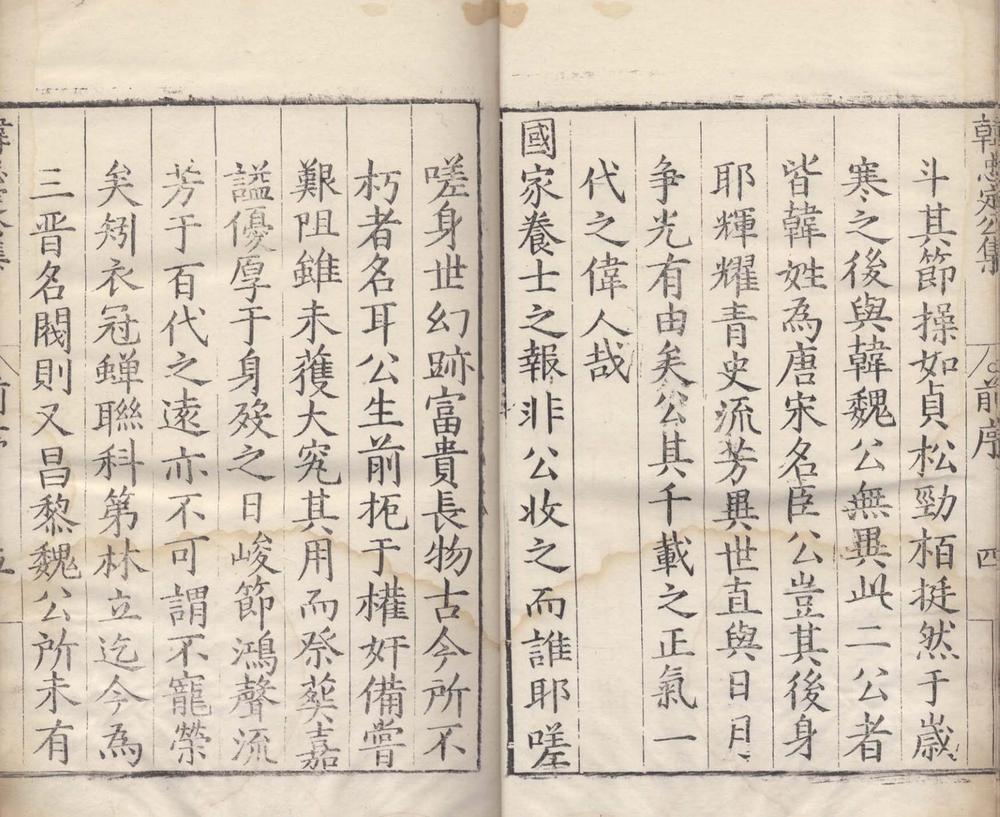 韓忠定公集
前序
四
斗其節操如貞松勁栢挺然于歲
寒之後與韓魏公無異此二公者
皆韓姓為唐宋名臣公豈其後身
耶輝耀青史流芳異世直與日月
争光有由矣公其千載之正氣一
代之偉人哉
國家養士之報非公收之而誰耶嗟
嗟身世幻跡富貴長物古今所不
朽者名耳公生前扼于權奸備嘗
艱阻雖未獲大究其用而祭葬嘉
謚優厚于身殁之日峻節鴻聲流
芳于百代之遠亦不可謂不寵榮
矣矧衣冠蟬聯科第林立迄今為
三晋名閥則又昌黎魏公所未有